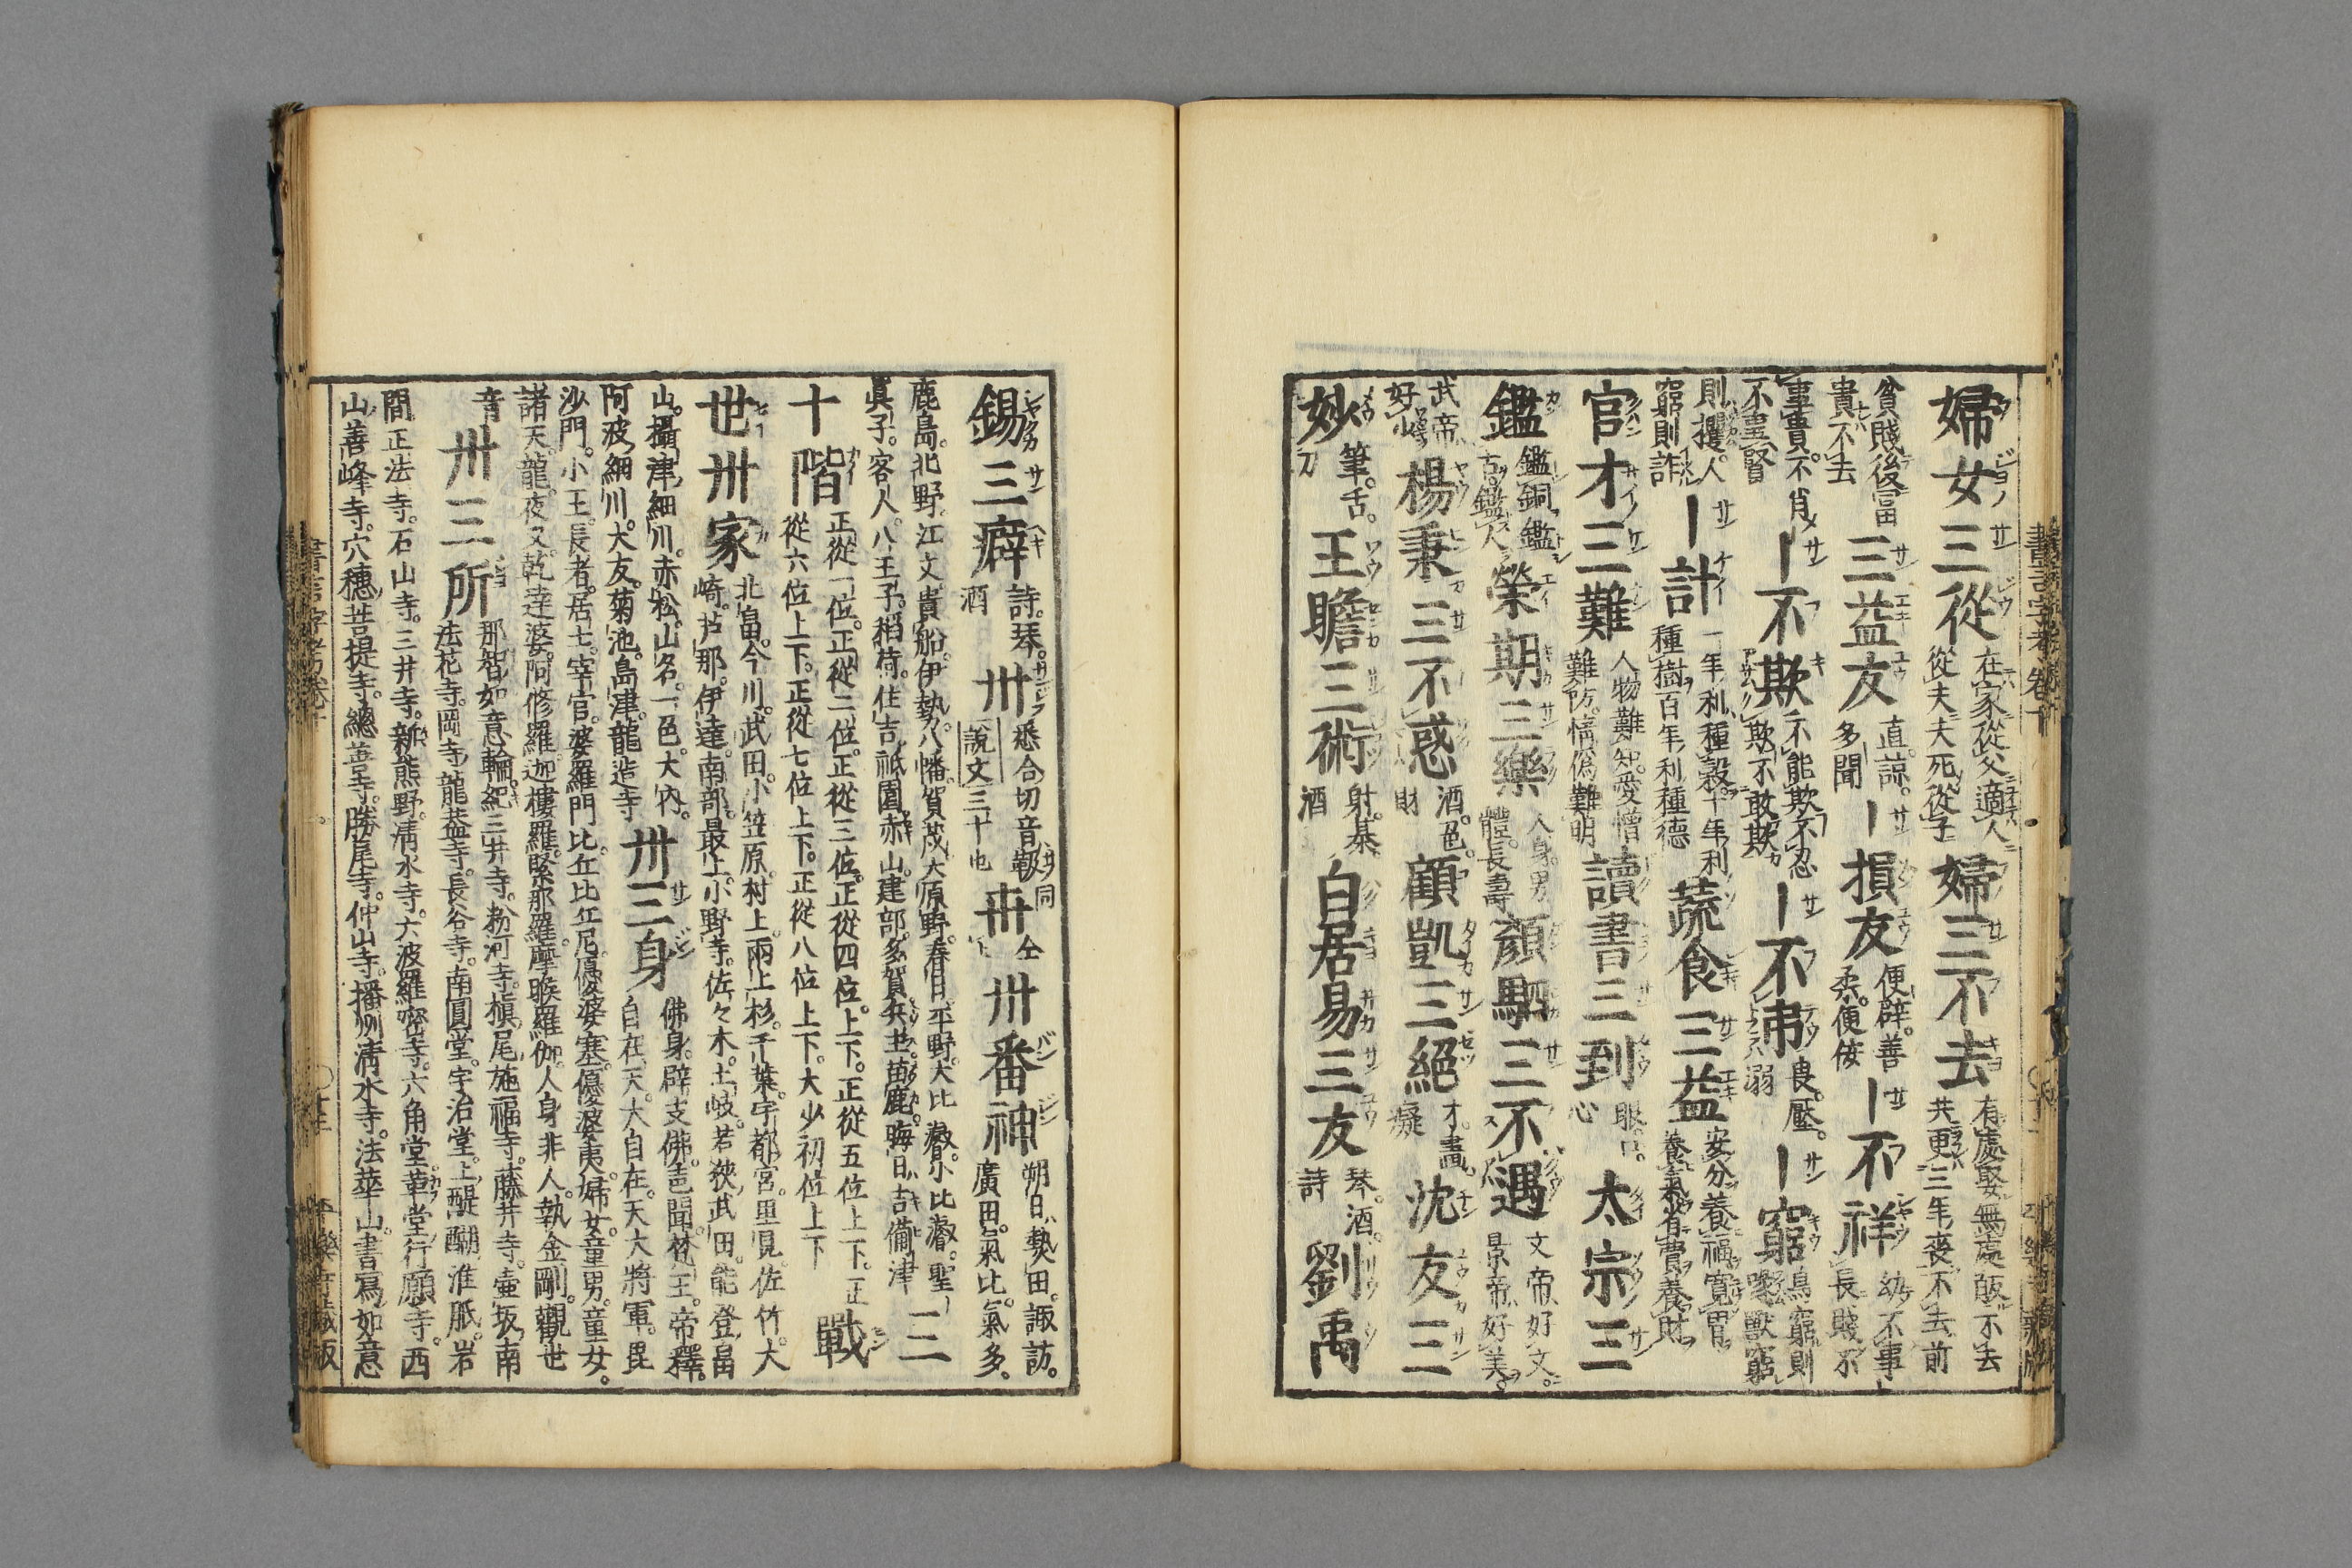 婦女三從 在家從父適人 從夫夫死從子 婦三不去 有處娶無處皈不去 共更三年喪不去前
貧賤後冨 貴不去 三益友 直諒 多聞 ー損友 便辟善 柔便佞 ー不祥 幼不事 長賤不
事貴不肖 不事賢 ー不欺 不能欺不忍 欺不敢欺 ー不弔 畏壓 溺 ー窮 鳥窮則 喙獸窮
則攫人 窮則詐 ー計 一年利種穀十年利 種樹百年利種德 蔬食三益 安分養福寛胃 養氣省費養財
官才三難 人物難知愛憎 難防情偽難明 讀書三到 眼口 心 太宗三
鑑 鑑銅鑑 古鑑人 榮期三樂 人身男 體長壽 顏駟三不遇 文帝好文 景帝好美
武帝 好少 楊秉三不惑 酒色 財 顧凱三絕 才畫 癡 沈友三
妙 筆舌 刀 王瞻三術 射棊 酒 白居易三友 琴酒 詩 劉禹
錫三癖 詩琴 酒 卅 悉合切音 同 說文三十也 卅 仝 卅番神 朔日熱田諏訪 廣田氣比氣多
鹿島北野江文貴船伊勢八幡賀茂大原野春日平野大比叡小比叡聖
眞子客人八王子稻荷住吉祇園赤山建部多賀兵主苗鹿晦日吉備津 三
十階 正從一位正從二位正從三位正從四位上下正從五位上下正 從六位上下正從七位上下正從八位上下大少初位上下 戰
世卅家 北畠今川武田小笠原村上兩上杉千葉宇都宮里見佐竹大 崎芦那伊達南部最上小野寺佐々木土岐若狹武田能登畠
山攝津細川赤松山名一色大內
阿波細川大友菊池島津龍造寺 卅三身 佛身辟支佛聲聞梵王帝釋 自在天大自在天大將軍毘
沙門小王長者居士宰官婆羅門比丘比丘尼優婆塞優婆夷婦女童男童女
諸天龍夜叉乾達婆阿修羅迦樓羅緊那羅摩睺羅伽人身非人執金剛觀世
音 卅三所 那智如意輪紀三井寺粉河寺槇尾施福寺藤井寺壷坂南 法花寺岡寺龍蓋寺長谷寺南圓堂宇治堂上醍醐准胝岩
間正法寺石山寺三井寺新熊野淸水寺六波羅密寺六角堂革堂行願寺西
山善峰寺穴穗菩提寺總寺勝尾寺仲山寺播州淸水寺法華山書寫如意